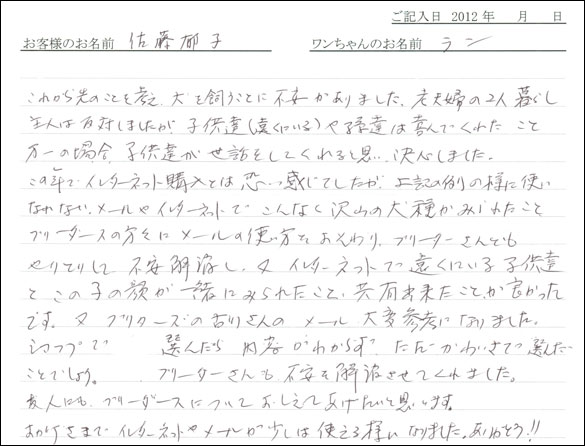 ご記入日 2012 年 月 日
お客様のお名前 佐藤郁子 ワンちゃんのお名前 ラン
これから先のことを考え、犬を飼うことに不安がありました。老夫婦の2人暮らし
主人は反対しましたが子供達(遠くにいる)や孫達は喜んでくれたこと
万一の場合、子供達が世話をしてくれると思い、決心しました。
この年でインターネット購入とは恐い感じでしたが、上記の例の様に使い
なれない、メールやインターネットでこんなに沢山の犬種がみられたこと
ブリーダースの方々にメールの使い方をおそわり、ブリーダーさんとも
やりとりして不安解消し、又インターネットで遠くにいる子供達
とこの子の顔が一緒にみられたこと、共有出来たことが良かった
です。又ブリーダーズの吉川さんのメール大変参考になりました。
ショップで 選んだら内容がわからず、ただかわいさで選んだ
ことでしょう。 ブリーダーさんも不安を解消させてくれました。
友人にも、ブリーダースについておしえてあげたいと思います。
おかげさまでインターネットやメールが少しは使える様になりました。ありがとう!!